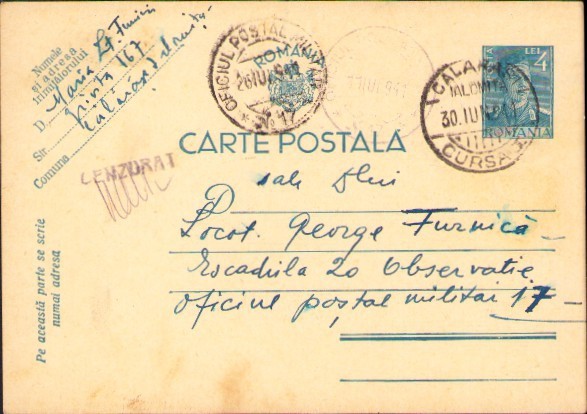 Numele
și adresa
trimițătorului
D. Maria Lt. Furnică
Str. Știrbei 167
Comuna Călărași Ialomița
Pe această parte se scrie
numai adresa
OFICIUL POSTAL MILITAR
26 IUL 941
* No 17 *
ROMANIA
LEI 4
ROMANIA
CALARASI
IALOMITA
30.IUN.941
CURSA
CENZURAT
CARTE POSTALĂ
D sale Dlui
Locot. George Furnică
Escadrila 20 Observatie
Oficiul poștal militar 17